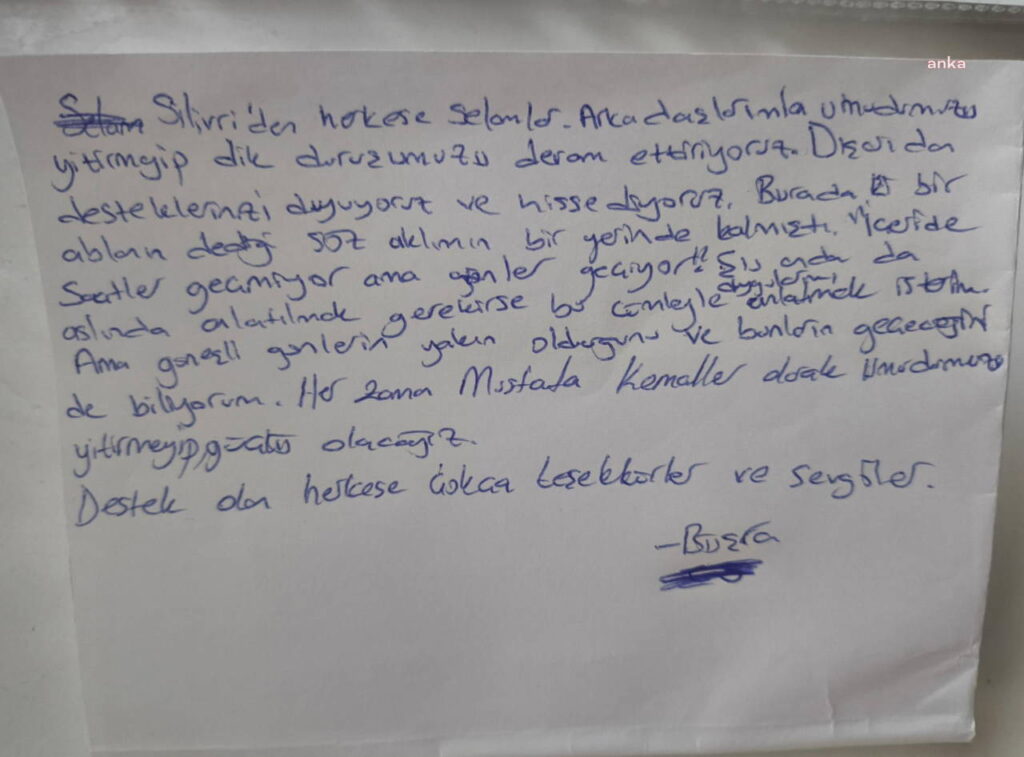 anka
Selam Silivri'den herkese selamlar. Arkadaşlarımla umudumuzu
yitirmeyip dik duruşumuzu devam ettiriyoruz. Dışarıdan
desteklerinizi duyuyoruz ve hissediyoruz. Burada bir
ablanın dediği söz aklımın bir yerinde kalmıştı. "İçeride
Saatler geçmiyor ama günler geçiyor!" Şu anda da
aslında anlatılmak gerekirse bu cümleyle duygularımı anlatmak isterim.
Ama güneşli günlerin yakın olduğunu ve bunların geçeceğini
de biliyorum. Her zaman Mustafa Kemaller olarak Umudumuzu
yitirmeyip güçlü olacağız.
Destek olan herkese çokça teşekkürler ve sevgiler.
-Büşra